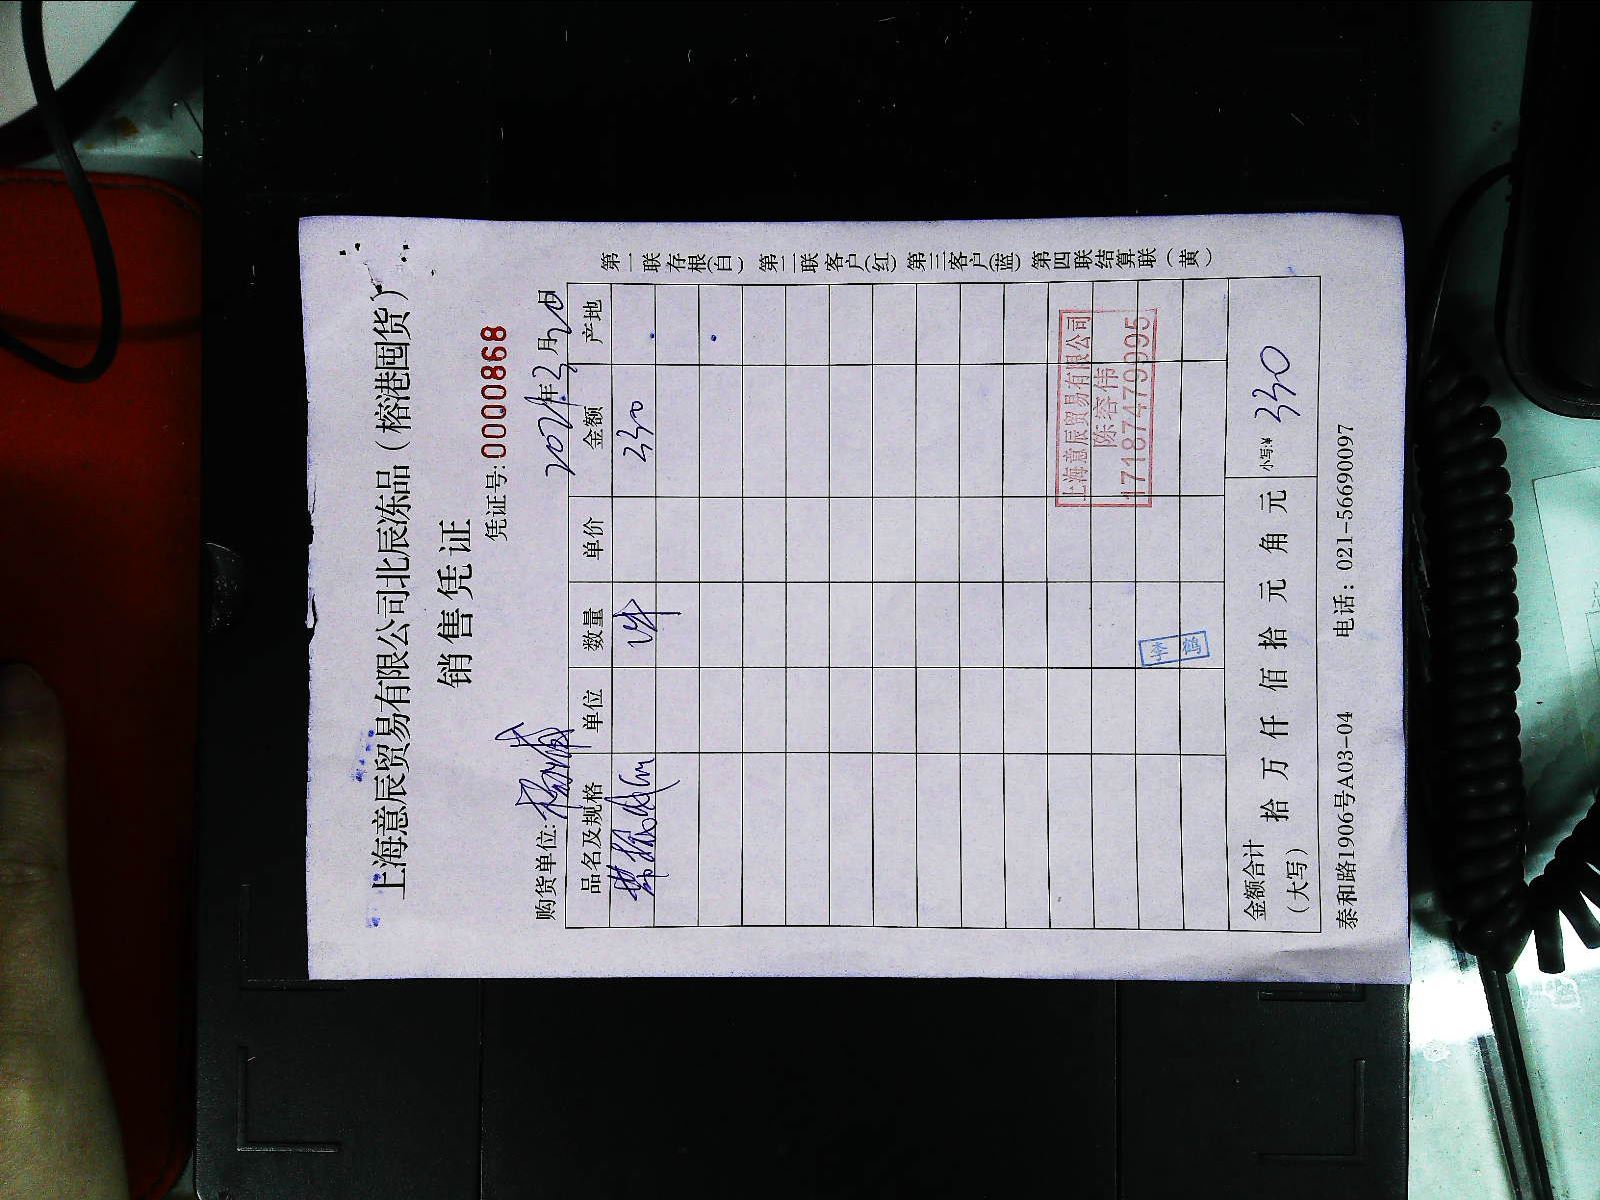 上海意辰贸易有限公司北辰冻品（榕港囤货）
销售凭证
凭证号:0000868
购货单位: 2021年3月20日
品名及规格 单位 数量 单价 金额 产地
1件 330
上海意辰贸易有限公司
陈容伟
17187479995
金额合计（大写） 拾 万 仟 佰 拾 元 角 元 小写:¥ 330
泰和路1906号A03-04 电话：021-56690097
第一联存根(白) 第二联客户(红) 第三客户(蓝) 第四联结算联（黄）